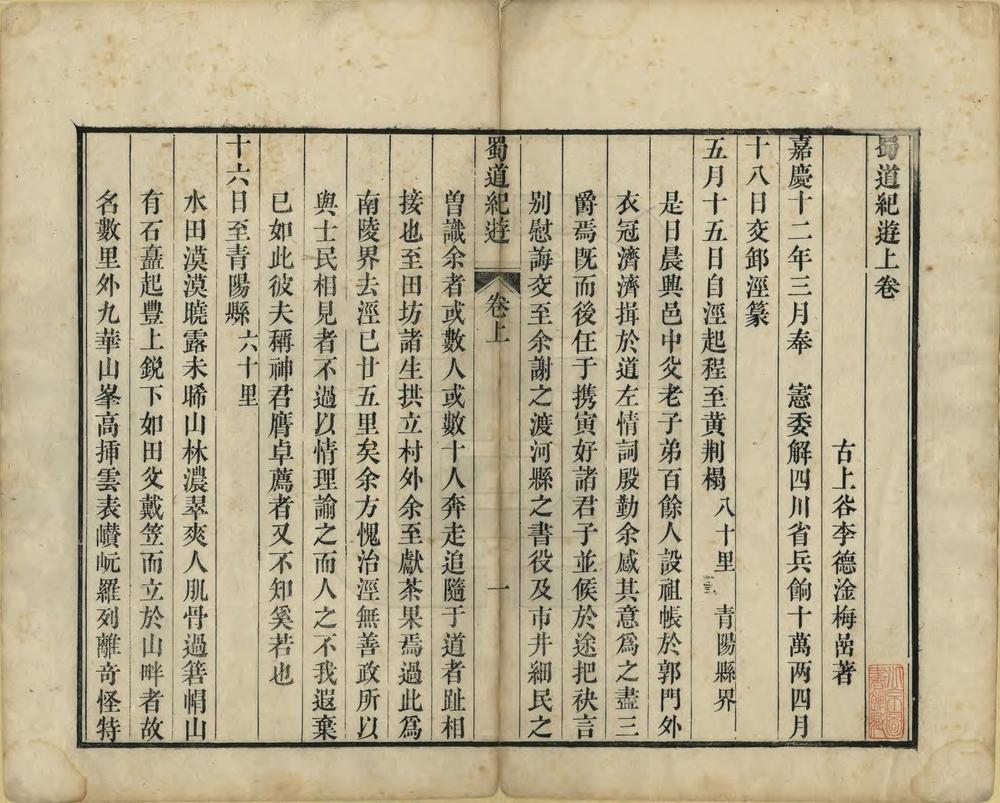 蜀道紀遊上卷
古上谷李德淦梅嵒著
嘉慶十二年三月奉　憲委解四川省兵餉十萬两四月
十八日交卸涇篆
五月十五日自涇起程至黄荆榻　八十里　青陽縣界
是日晨興邑中父老子弟百餘人設祖帳於郭門外
衣冠濟濟揖於道左情詞殷勤余感其意爲之盡三
爵焉既而後任于攜寅好諸君子並候於途把袂言
别慰誨交至余謝之渡河縣之書役及市井細民之
蜀道紀遊　卷上　一
曽識余者或數人或數十人奔走追隨于道者趾相
接也至田坊諸生拱立村外余至獻茶果焉過此爲
南陵界去涇已廿五里矣余方愧治涇無善政所以
與士民相見者不過以情理諭之而人之不我遐棄
已如此彼夫稱神君膺卓薦者又不知奚若也
十六日至青陽縣　六十里
水田漠漠曉露未晞山林濃翠爽人肌骨過箬帽山
有石矗起豐上鋭下如田父戴笠而立於山畔者故
名數里外九華山峯高揷雲表巑岏羅列離奇怪特